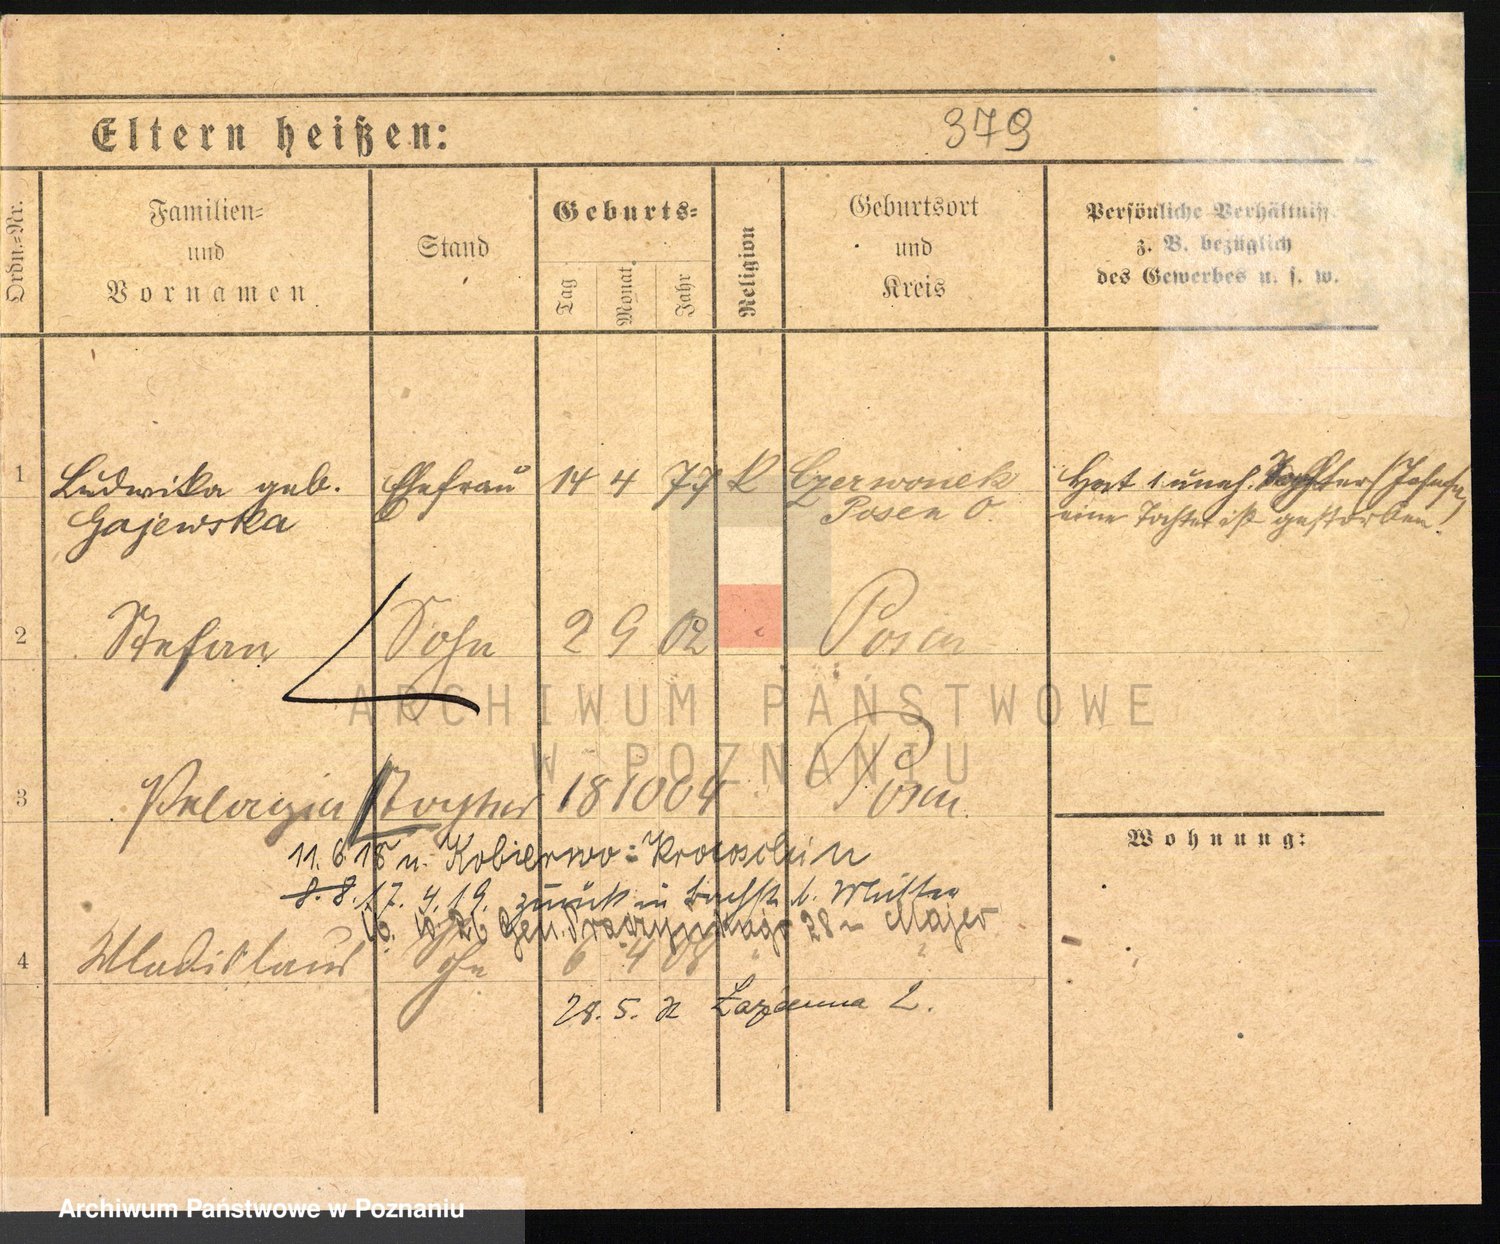 Eltern heißen:
379
Ordn.-Nr.
Familien-
und
Vornamen
Stand
Geburts-
Tag
Monat
Jahr
Religion
Geburtsort
und
Kreis
Persönliche Verhältniss
z. B. bezüglich
des Gewerbes u. s. w.
1 Ludwika geb. Ehefrau 14 4 77 K Czerwonek Hat 1 uneh. Tochter
Gajewska Posen O. eine Tochter ist gestorben.
2 Stefan Sohn 2 9 02 Posen
ARCHIWUM PAŃSTWOWE
W POZNANIU
3 Pelagia Tochter 18 10 04 Posen
Wohnung:
11. 6 18 n. Kobierwo: Krotoschin
8. 8. 17. 4. 19. zurück in b. Mutter
10. 26 Gen. Prądzyńskiego 28 - Majer
4 Wladislaus Sohn 6 4 08 "
28. 5. Łazienna 2.
Archiwum Państwowe w Poznaniu